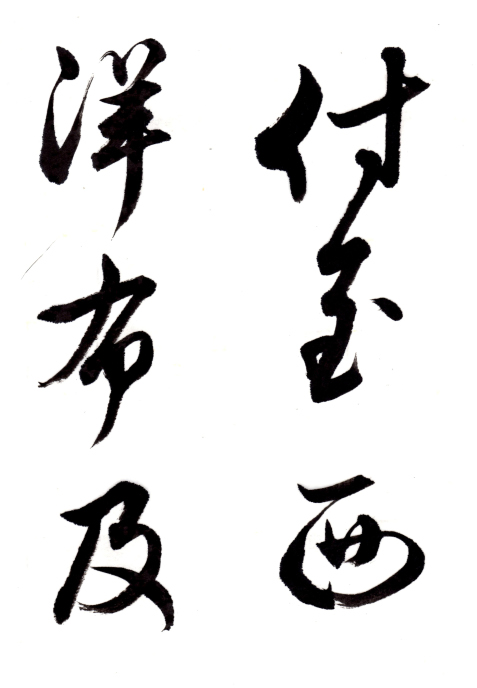 付至西
洋布及